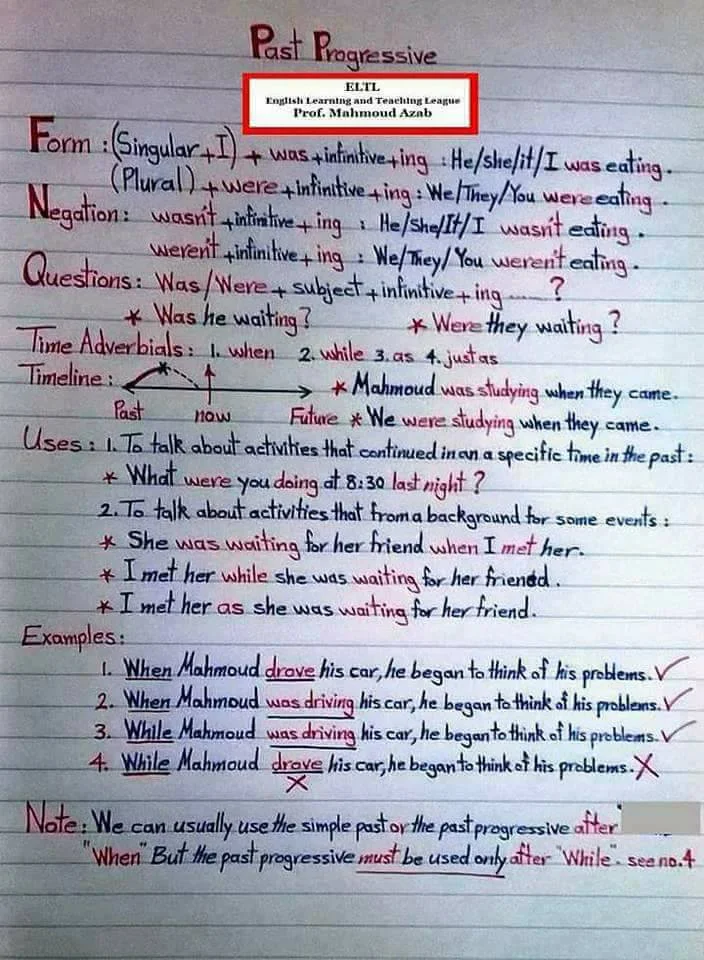 Past Progressive
ELTL
English Learning and Teaching League
Prof. Mahmoud Azab
Form : (Singular + I) + was + infinitive + ing : He/she/it/I was eating.
(Plural) + were + infinitive + ing : We/They/You were eating.
Negation : wasn't + infinitive + ing : He/She/It/I wasn't eating.
weren't + infinitive + ing : We/They/You weren't eating.
Questions : Was/Were + subject + infinitive + ing ...... ?
* Was he waiting? * Were they waiting ?
Time Adverbials : 1. when 2. while 3. as 4. just as
Timeline : * Mahmoud was studying when they came.
Past now Future * We were studying when they came.
Uses : 1. To talk about activities that continued in an a specific time in the past :
* What were you doing at 8:30 last night ?
2. To talk about activities that from a background for some events :
* She was waiting for her friend when I met her.
* I met her while she was waiting for her friend.
* I met her as she was waiting for her friend.
Examples :
1. When Mahmoud drove his car, he began to think of his problems. ✓
2. When Mahmoud was driving his car, he began to think of his problems. ✓
3. While Mahmoud was driving his car, he began to think of his problems. ✓
4. While Mahmoud drove his car, he began to think of his problems. X
X
Note : We can usually use the simple past or the past progressive after "
"When" But the past progressive must be used only after "While". see no.4